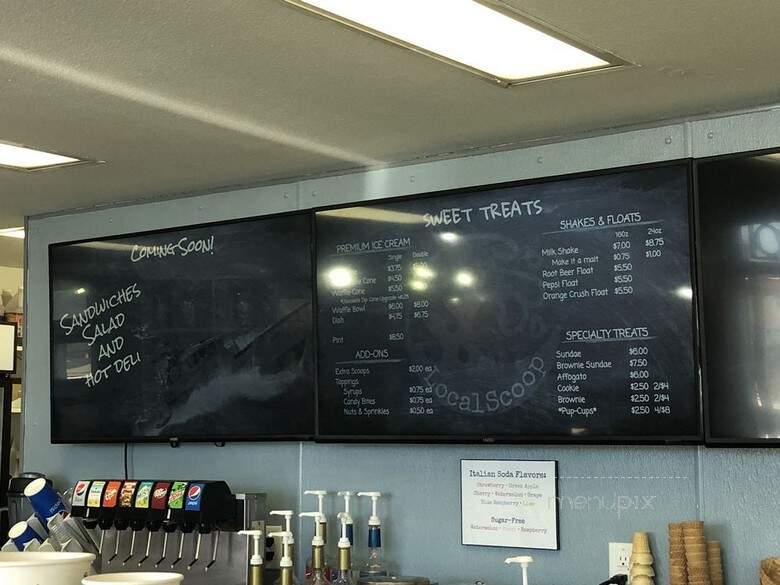 COMING SOON!
SANDWICHES
SALAD
AND
HOT DELI
SWEET TREATS
PREMIUM ICE CREAM
Single Double
$3.75
Cone $4.50
Cone $5.50
Waffle Bowl $6.00 $8.00
Dish $4.75 $6.75
Pint $8.50
ADD-ONS
Extra Scoops $2.00 ea
Toppings
Syrups $0.75 ea
Candy Bites $0.75 ea
Nuts & Sprinkles $0.50 ea
LocalScoop
SHAKES & FLOATS
16oz 24oz
Milk Shake $7.00 $8.75
Make it a malt $0.75 $1.00
Root Beer Float $5.50
Pepsi Float $5.50
Orange Crush Float $5.50
SPECIALTY TREATS
Sundae $6.00
Brownie Sundae $7.50
Affogato $6.00
Cookie $2.50 2/$4
Brownie $2.50 2/$4
*Pup-Cups* $2.50 4/$8
Italian Soda Flavors:
Strawberry · Green Apple
Cherry · Watermelon · Grape
Blue Raspberry · Lime
Sugar-Free
Watermelon · Raspberry
menupix